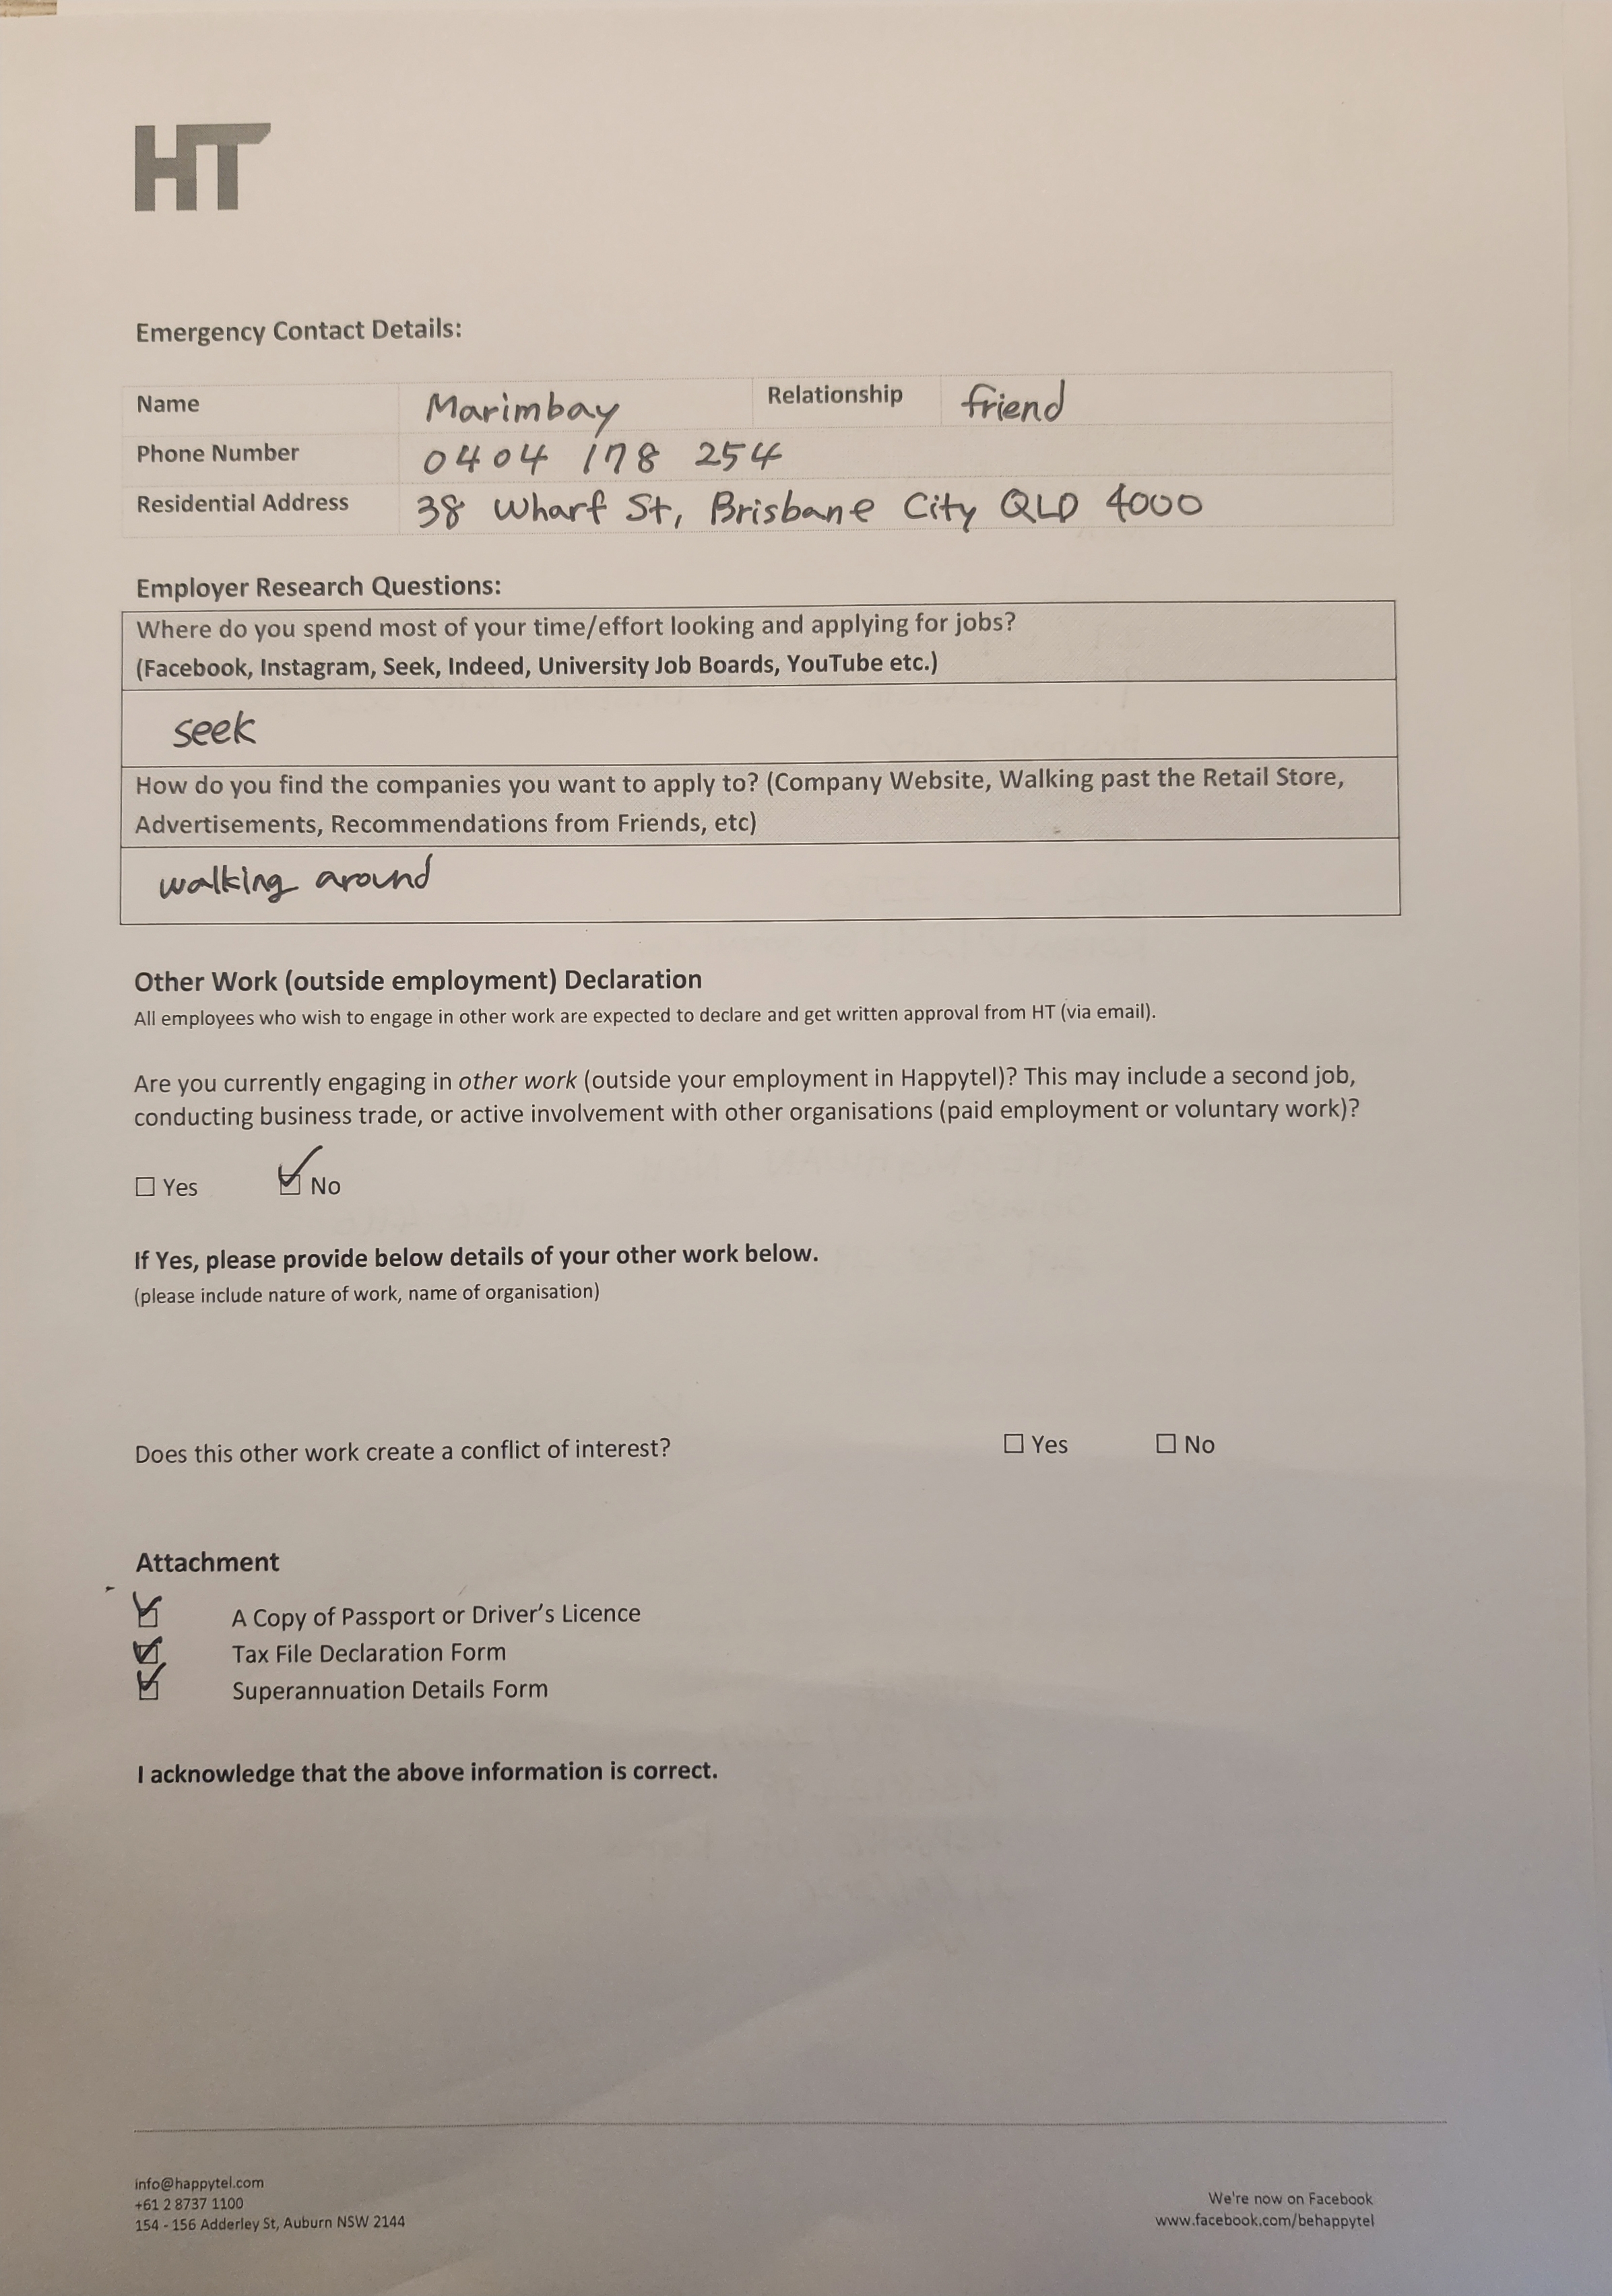 HT
Emergency Contact Details:
Name Marimbay Relationship friend
Phone Number 0404 178 254
Residential Address 38 Wharf St, Brisbane City QLD 4000
Employer Research Questions:
Where do you spend most of your time/effort looking and applying for jobs?
(Facebook, Instagram, Seek, Indeed, University Job Boards, YouTube etc.)
seek
How do you find the companies you want to apply to? (Company Website, Walking past the Retail Store,
Advertisements, Recommendations from Friends, etc)
walking around
Other Work (outside employment) Declaration
All employees who wish to engage in other work are expected to declare and get written approval from HT (via email).
Are you currently engaging in other work (outside your employment in Happytel)? This may include a second job,
conducting business trade, or active involvement with other organisations (paid employment or voluntary work)?
☐ Yes ☑ No
If Yes, please provide below details of your other work below.
(please include nature of work, name of organisation)
Does this other work create a conflict of interest? ☐ Yes ☐ No
Attachment
☑ A Copy of Passport or Driver's Licence
☑ Tax File Declaration Form
☑ Superannuation Details Form
I acknowledge that the above information is correct.
info@happytel.com
+61 2 8737 1100
154 - 156 Adderley St, Auburn NSW 2144
We're now on Facebook
www.facebook.com/behappytel